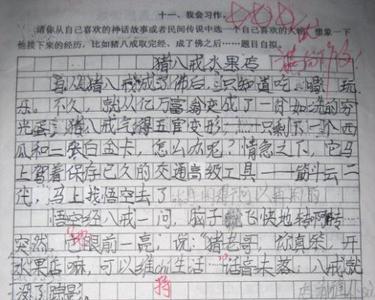 十一、我会习作。
请你从自己喜欢的神话故事或者民间传说中选一个自己喜欢的人物，想象一下
他接下来的经历，比如猪八戒取完经、成了佛之后……题目自拟。
猪八戒水果店
自从猪八戒成了佛后，只知道吃、喝、玩
乐。不久，就从亿万富翁变成了一贫如洗的穷
光蛋，猪八戒气得五官变形，只剩下一个西
瓜和一张白金卡，怎么办呢？情急之下，它马
上穿着保存已久的交通高级工具——筋斗云二
，马上找悟空去了
悟空经八戒一问，脑子飞快地转啊转
突然，眼前一亮，说：“猪老哥，你真笨，开
水果店嘛，可以维chí生活”话音未落，八戒就
持
没了踪影